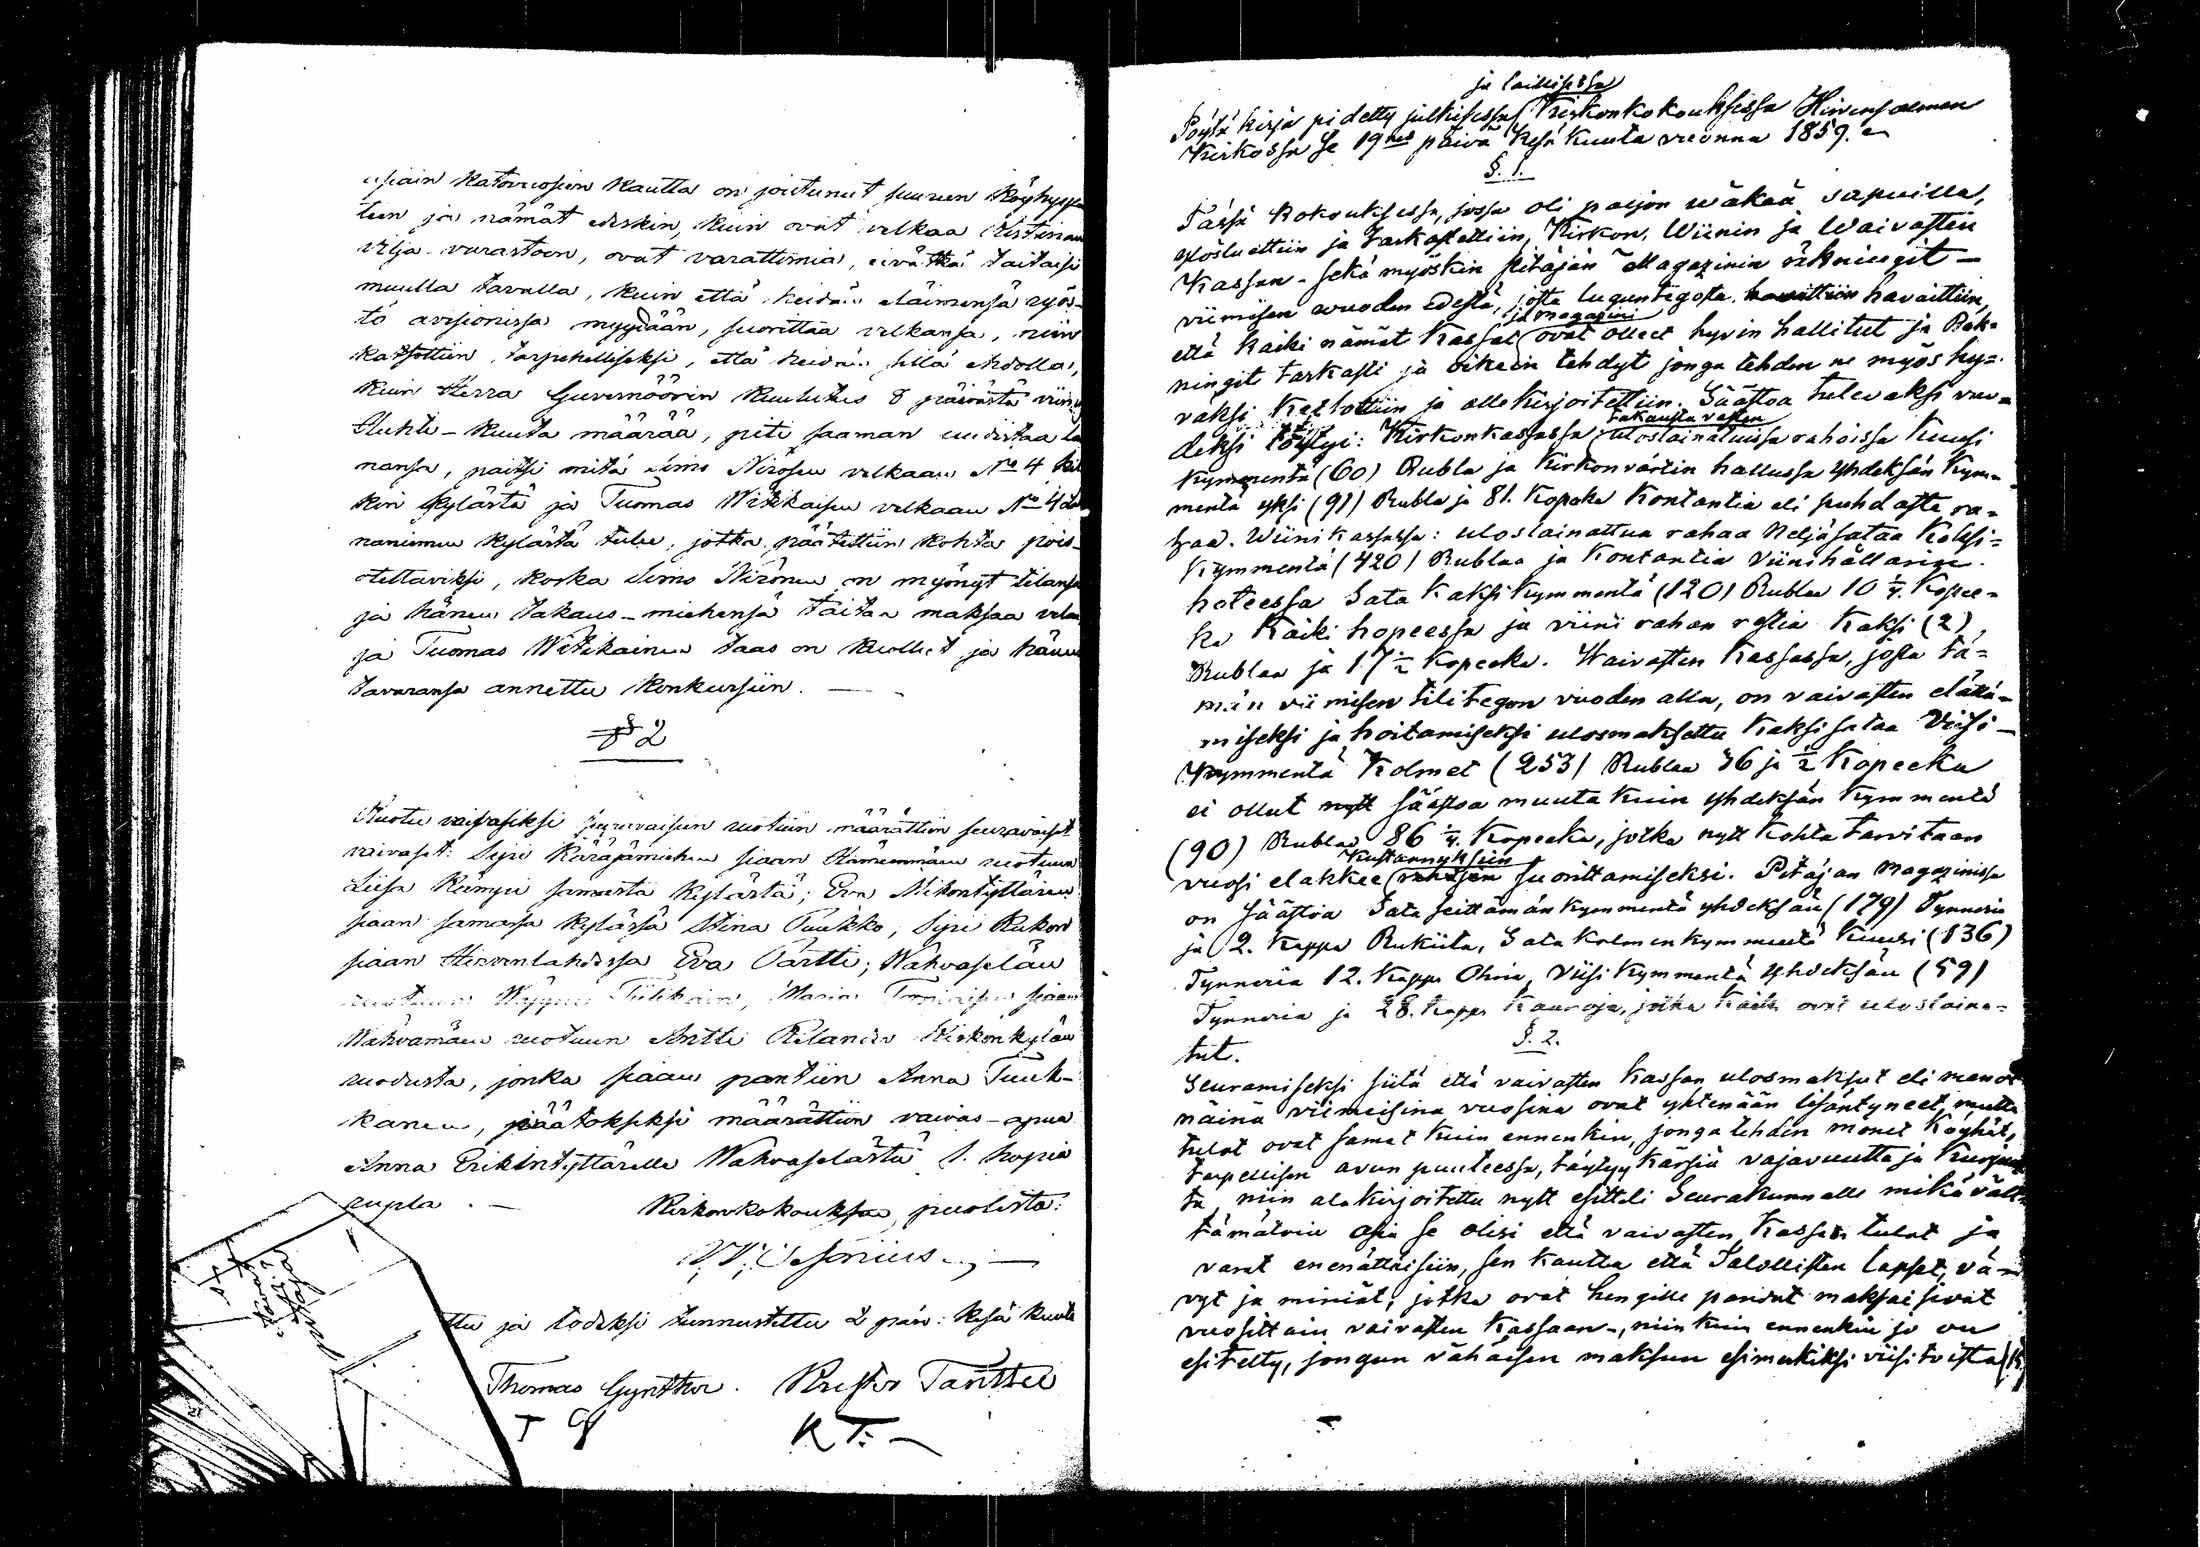 usiain katovuosien kautta on joutunut suureen köyhyy-
teen ja nämät edeskin, kuin ovat velkaa Pitäjän
vilja-varastoon, ovat varattimia, eivätkä taitaisi
muulla tavalla, kuin että heidän eläimensä ryös-
tö avisionissa myydään, suorittaa velkansa, niin
katsottiin tarpeelliseksi, että heidän sillä ehdolla,
kuin Herra Guvernöörin kuulutus 8 päivästä viime
Huhti-kuuta määrää, piti saaman uudistaa lai
nansa, paitsi mitä Simo Nirosen velkaan No 4
kin kylästä ja Tuomas Witikaisen velkaan No 4
naniemen kylästä tulee, jotka päätettiin kohta pois-
otettaviksi, koska Simo Nironen on myönyt tilansa
ja hänen takaus-miehensä taitaa maksaa velan
ja Tuomas Witikainen taas on kuollut ja hänen
tavaransa annettu konkurssiin. —
§ 2
Ruotu vaivasiksi seuravaisiin ruotuin määrättiin seuravaiset
vaivaset: Sipi Käräjämiehen siaan Hämeenmäen ruotuun
Liisa Rämpi samasta kylästä; Eva Mikontyttären
siaan samassa kylässä Stina Tuukko, Sipi Rukon
siaan Hirvenlahdessa Eva Partti; Wahvaselän
ruotuun Tiilikain, Maria siaan
Wahvamäen ruotuun Antti Rilander Kirkonkylän
ruodusta, jonka siaan pantiin Anna Tuuk-
kanen, päätökseksi määrättiin vaivas-apua
Anna Erikintyttärelle Wahvaselästä 1. hopia
rupla. —
Kirkonkokouksen puolesta:
ttu ja todeksi tunnustettu 2 päiv: Kesä kuuta
Thomas Gynther. Krister Tanttu
T G K T. —
ja laillisessa
Pöytä kirja pidetty julkisessa Kirkonkokouksessa Hirvensalmen
Kirkossa se 19nes päivä Kesä kuuta vuonna 1859.
§. 1.
Tässä kokouksessa, jossa oli paljon wäkeä sapuilla,
ylösluettiin ja tarkastettiin, Kirkon, Wiinin ja Waivasten
Kassan- sekä myöskin Pitäjän Magazinin räkningit —
viimisen wuoden edestä, josta luguntegosta havaittiin havaittiin,
ja magazini
että kaiki nämät Kassat ovat olleet hyvin hallitut ja Räk-
ningit tarkasti ja oikein tehdyt jonga tehden ne myös hy-
väksi katsottiin ja allekirjoitettiin. Säästöä tulevaksi vuo-
takausta vasten
deksi löytyi: Kirkonkassassa uloslainatuissa rahoissa Kuusi
kymmentä (60) Rubla ja Kirkonvärtin hallussa yhdeksän kym-
mentä yksi (91) Rubla ja 81. Kopeka Kontantia eli puhdasta ra-
haa. Wiinikassassa: uloslainattua rahaa Neljäsataa Kaksi-
kymmentä (420) Rublaa ja Kontantia viinihällarin
hoteessa Sata kaksi kymmentä (120) Rublaa 10 ¼ Kopee-
ka Kaiki hopeessa ja viini rahan restia Kaksi (2)
Rublaa ja 17 ½ Kopeeka. Waivasten Kassassa, josta tä-
män viimisen tilitegon vuoden alla, on vaivasten elättä-
miseksi ja hoitamiseksi ulosmaksettu Kaksi sataa Viisi-
kymmentä Kolmet (253) Rublaa 36 ja ½ Kopeeka
ei ollut nytt säästöä muuta kuin yhdeksän kymmentä
(90) Rublaa 86 ¼ Kopeeka, jotka nytt kohta tarvitaan
Kustannuksien
vuosi elakkee suorittamiseksi. Pitäjän Magazinissa
on säästöä Sata seittämän kymmentä yhdeksän (179) Tynneriä
ja 2. Kappa Rukiita, Sata kolmenkymmentä kuusi (136)
Tynneriä 12. Kappa Ohria, viisi kymmentä yhdeksän (59)
Tynneriä ja 28. Kappa Kauroja, jotka kaiki ovat uloslaina-
tut.
§. 2.
Seuramiseksi siitä että vaivasten kassan ulosmaksut eli menot
näinä viimeisinä vuosina ovat yhtenään lisäntyneet, mutta
tulot ovat samat kuin ennenkin, jonga tehden monet köyhät,
tarpellisen avun puuteessa, täytyy kärsiä vajavuutta ja kurju
ta, niin alakirjoitettu nytt esitteli Seurakunnalle mikä vält-
tämätöin asia se olisi että vaivasten Kassan tulot ja
varat enenättäisiin, sen kautta että Talollisten lapset, vä-
vyt ja miniät, jotka ovat hengille pandut maksaisivat
vuosittain vaivasten Kassaan-, niin kuin ennenkin jo on
esitelty, jongun vähäisen maksun esimerkiksi viisitoista (15)